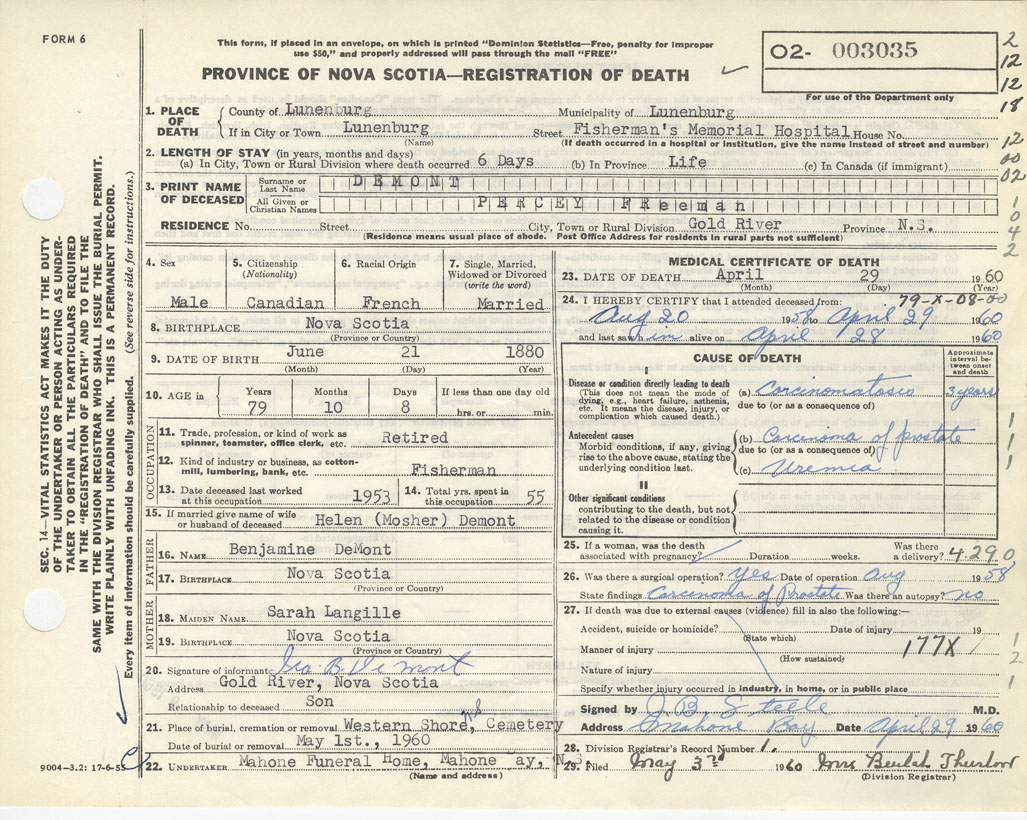 FORM 6
This form, if placed in an envelope, on which is printed "Dominion Statistics—Free, penalty for improper
use $50," and properly addressed will pass through the mail "FREE"
PROVINCE OF NOVA SCOTIA—REGISTRATION OF DEATH
02- 003035
For use of the Department only
2
12
12
18
12
00
02
1. PLACE OF DEATH
County of Lunenburg Municipality of Lunenburg
If in City or Town Lunenburg Street Fisherman's Memorial Hospital House No.
(Name) (If death occurred in a hospital or institution, give the name instead of street and number)
2. LENGTH OF STAY (in years, months and days)
(a) In City, Town or Rural Division where death occurred 6 Days (b) In Province Life (c) In Canada (if immigrant)
3. PRINT NAME OF DECEASED
Surname or Last Name DEMONT
All Given or Christian Names PERCEY FReeman
1
0
4
2
RESIDENCE No. Street City, Town or Rural Division Gold River Province N.S.
(Residence means usual place of abode. Post Office Address for residents in rural parts not sufficient)
SEC. 14—VITAL STATISTICS ACT MAKES IT THE DUTY
OF THE UNDERTAKER OR PERSON ACTING AS UNDER-
TAKER TO OBTAIN ALL THE PARTICULARS REQUIRED
IN THE "REGISTRATION OF DEATH" AND TO FILE THE
SAME WITH THE DIVISION REGISTRAR WHO SHALL ISSUE THE BURIAL PERMIT.
WRITE PLAINLY WITH UNFADING INK. THIS IS A PERMANENT RECORD.
Every item of information should be carefully supplied. (See reverse side for instructions.)
4. Sex
Male
5. Citizenship
(Nationality)
Canadian
6. Racial Origin
French
7. Single, Married,
Widowed or Divorced
(write the word)
Married
8. BIRTHPLACE Nova Scotia
(Province or Country)
9. DATE OF BIRTH June 21 1880
(Month) (Day) (Year)
10. AGE in
Years Months Days If less than one day old
79 10 8 hrs. or min.
OCCUPATION
11. Trade, profession, or kind of work as
spinner, teamster, office clerk, etc. Retired
12. Kind of industry or business, as cotton-
mill, lumbering, bank, etc. Fisherman
13. Date deceased last worked
at this occupation 1953
14. Total yrs. spent in
this occupation 55
15. If married give name of wife
or husband of deceased Helen (Mosher) Demont
FATHER
16. NAME Benjamine DeMont
17. BIRTHPLACE Nova Scotia
(Province or Country)
MOTHER
18. MAIDEN NAME Sarah Langille
19. BIRTHPLACE Nova Scotia
(Province or Country)
20. Signature of informant Geo. B. DeMont
Address Gold River, Nova Scotia
Relationship to deceased Son
21. Place of burial, cremation or removal Western Shore, NS Cemetery
Date of burial or removal May 1st., 1960
22. UNDERTAKER Mahone Funeral Home, Mahone ay, N.S.
(Name and address)
9004—3.2: 17-6-55
MEDICAL CERTIFICATE OF DEATH
23. DATE OF DEATH April 29 1960
(Month) (Day) (Year)
24. I HEREBY CERTIFY that I attended deceased from: 79-X-08-00
Aug 20 1958 to April 29 1960
and last saw him alive on April 28 1960
CAUSE OF DEATH
Approximate interval between onset and death
I
Disease or condition directly leading to death
(This does not mean the mode of
dying, e.g., heart failure, asthenia,
etc. It means the disease, injury, or
complication which caused death.)
(a) Carcinomatosis 3 years
due to (or as a consequence of)
Antecedent causes
Morbid conditions, if any, giving
rise to the above cause, stating the
underlying condition last.
(b) Carcinoma of prostate
due to (or as a consequence of)
(c) Uremia
II
Other significant conditions
contributing to the death, but not
related to the disease or condition
causing it.
1
1
1
25. If a woman, was the death
associated with pregnancy? Duration weeks. Was there
a delivery? 4.290
26. Was there a surgical operation? yes Date of operation Aug 1958
State findings Carcinoma of Prostate Was there an autopsy? no
27. If death was due to external causes (violence) fill in also the following:—
Accident, suicide or homicide? Date of injury 19
(State which)
Manner of injury 177X
(How sustained)
Nature of injury
1
2
1
Specify whether injury occurred in industry, in home, or in public place
Signed by J. B. Steele M.D.
Address Mahone Bay Date April 29 1960
28. Division Registrar's Record Number 1.
29. Filed May 3rd 1960 Mrs Beulah Thurlow
(Division Registrar)